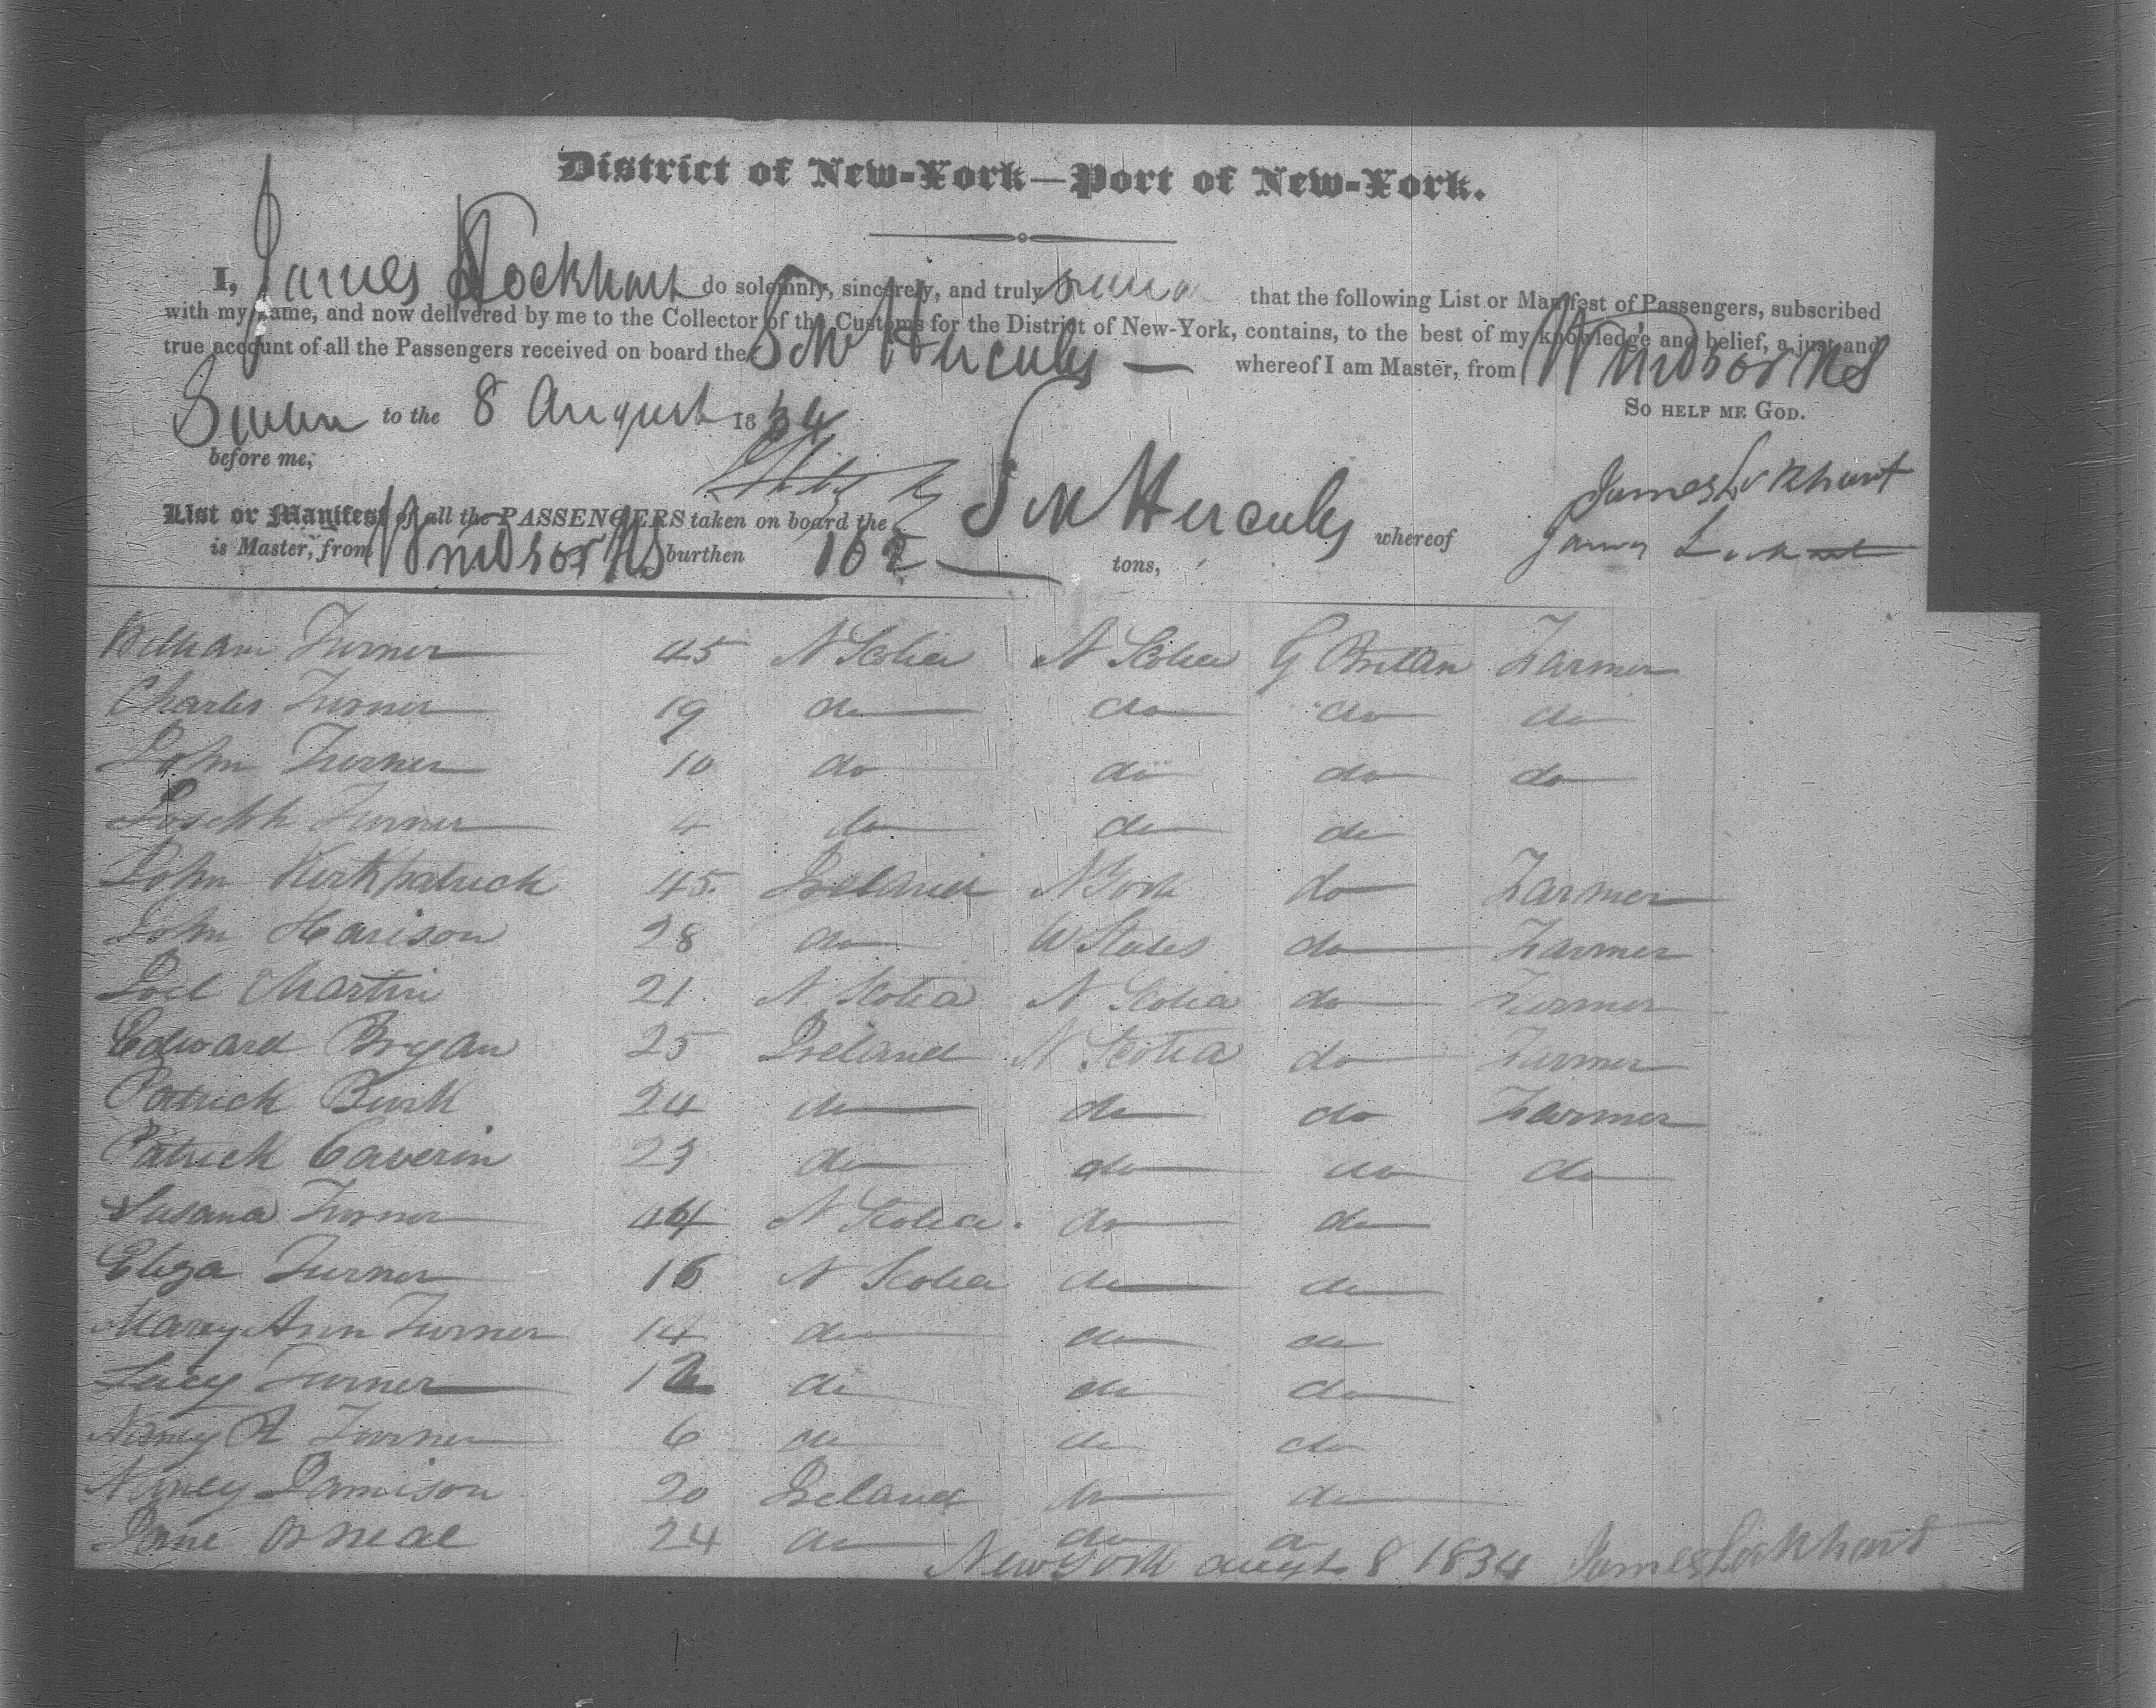 District of New-York—Port of New-York.
I, James Lockhart do solemnly, sincerely, and truly swear that the following List or Manifest of Passengers, subscribed
with my name, and now delivered by me to the Collector of the Customs for the District of New-York, contains, to the best of my knowledge and belief, a just and
true account of all the Passengers received on board the Hercules — whereof I am Master, from Windsor NS
Sworn to the 8 August 1834 So help me God.
before me, James Lockhart
List or Manifest of all the PASSENGERS taken on board the Hercules whereof James Lockhart
is Master, from Windsor NS burthen 162 tons,
William Turner 45 N Scotia N Scotia G Britan Farmer
Charles Turner 19 do do do do
John Turner 10 do do do do
Joseph Turner 4 do do do
John Kirkpatrick 45 Ireland N York do Farmer
John Harison 28 do States do Farmer
Joel Martin 21 N Scotia N Scotia do Farmer
Edward Bryan 25 Ireland N Scotia do Farmer
Patrick Burk 24 do do do Farmer
Patrick Caverin 23 do do do do
Susana Turner 44 N Scotia do do
Eliza Turner 16 N Scotia do do
Mary Ann Turner 14 do do do
Lucy Turner 12 do do do
Turner 6 do do do
Nancy Jamison 20 Ireland do do
Jane Oneal 24 do do do
New York augt 8 1834 James Lockhart